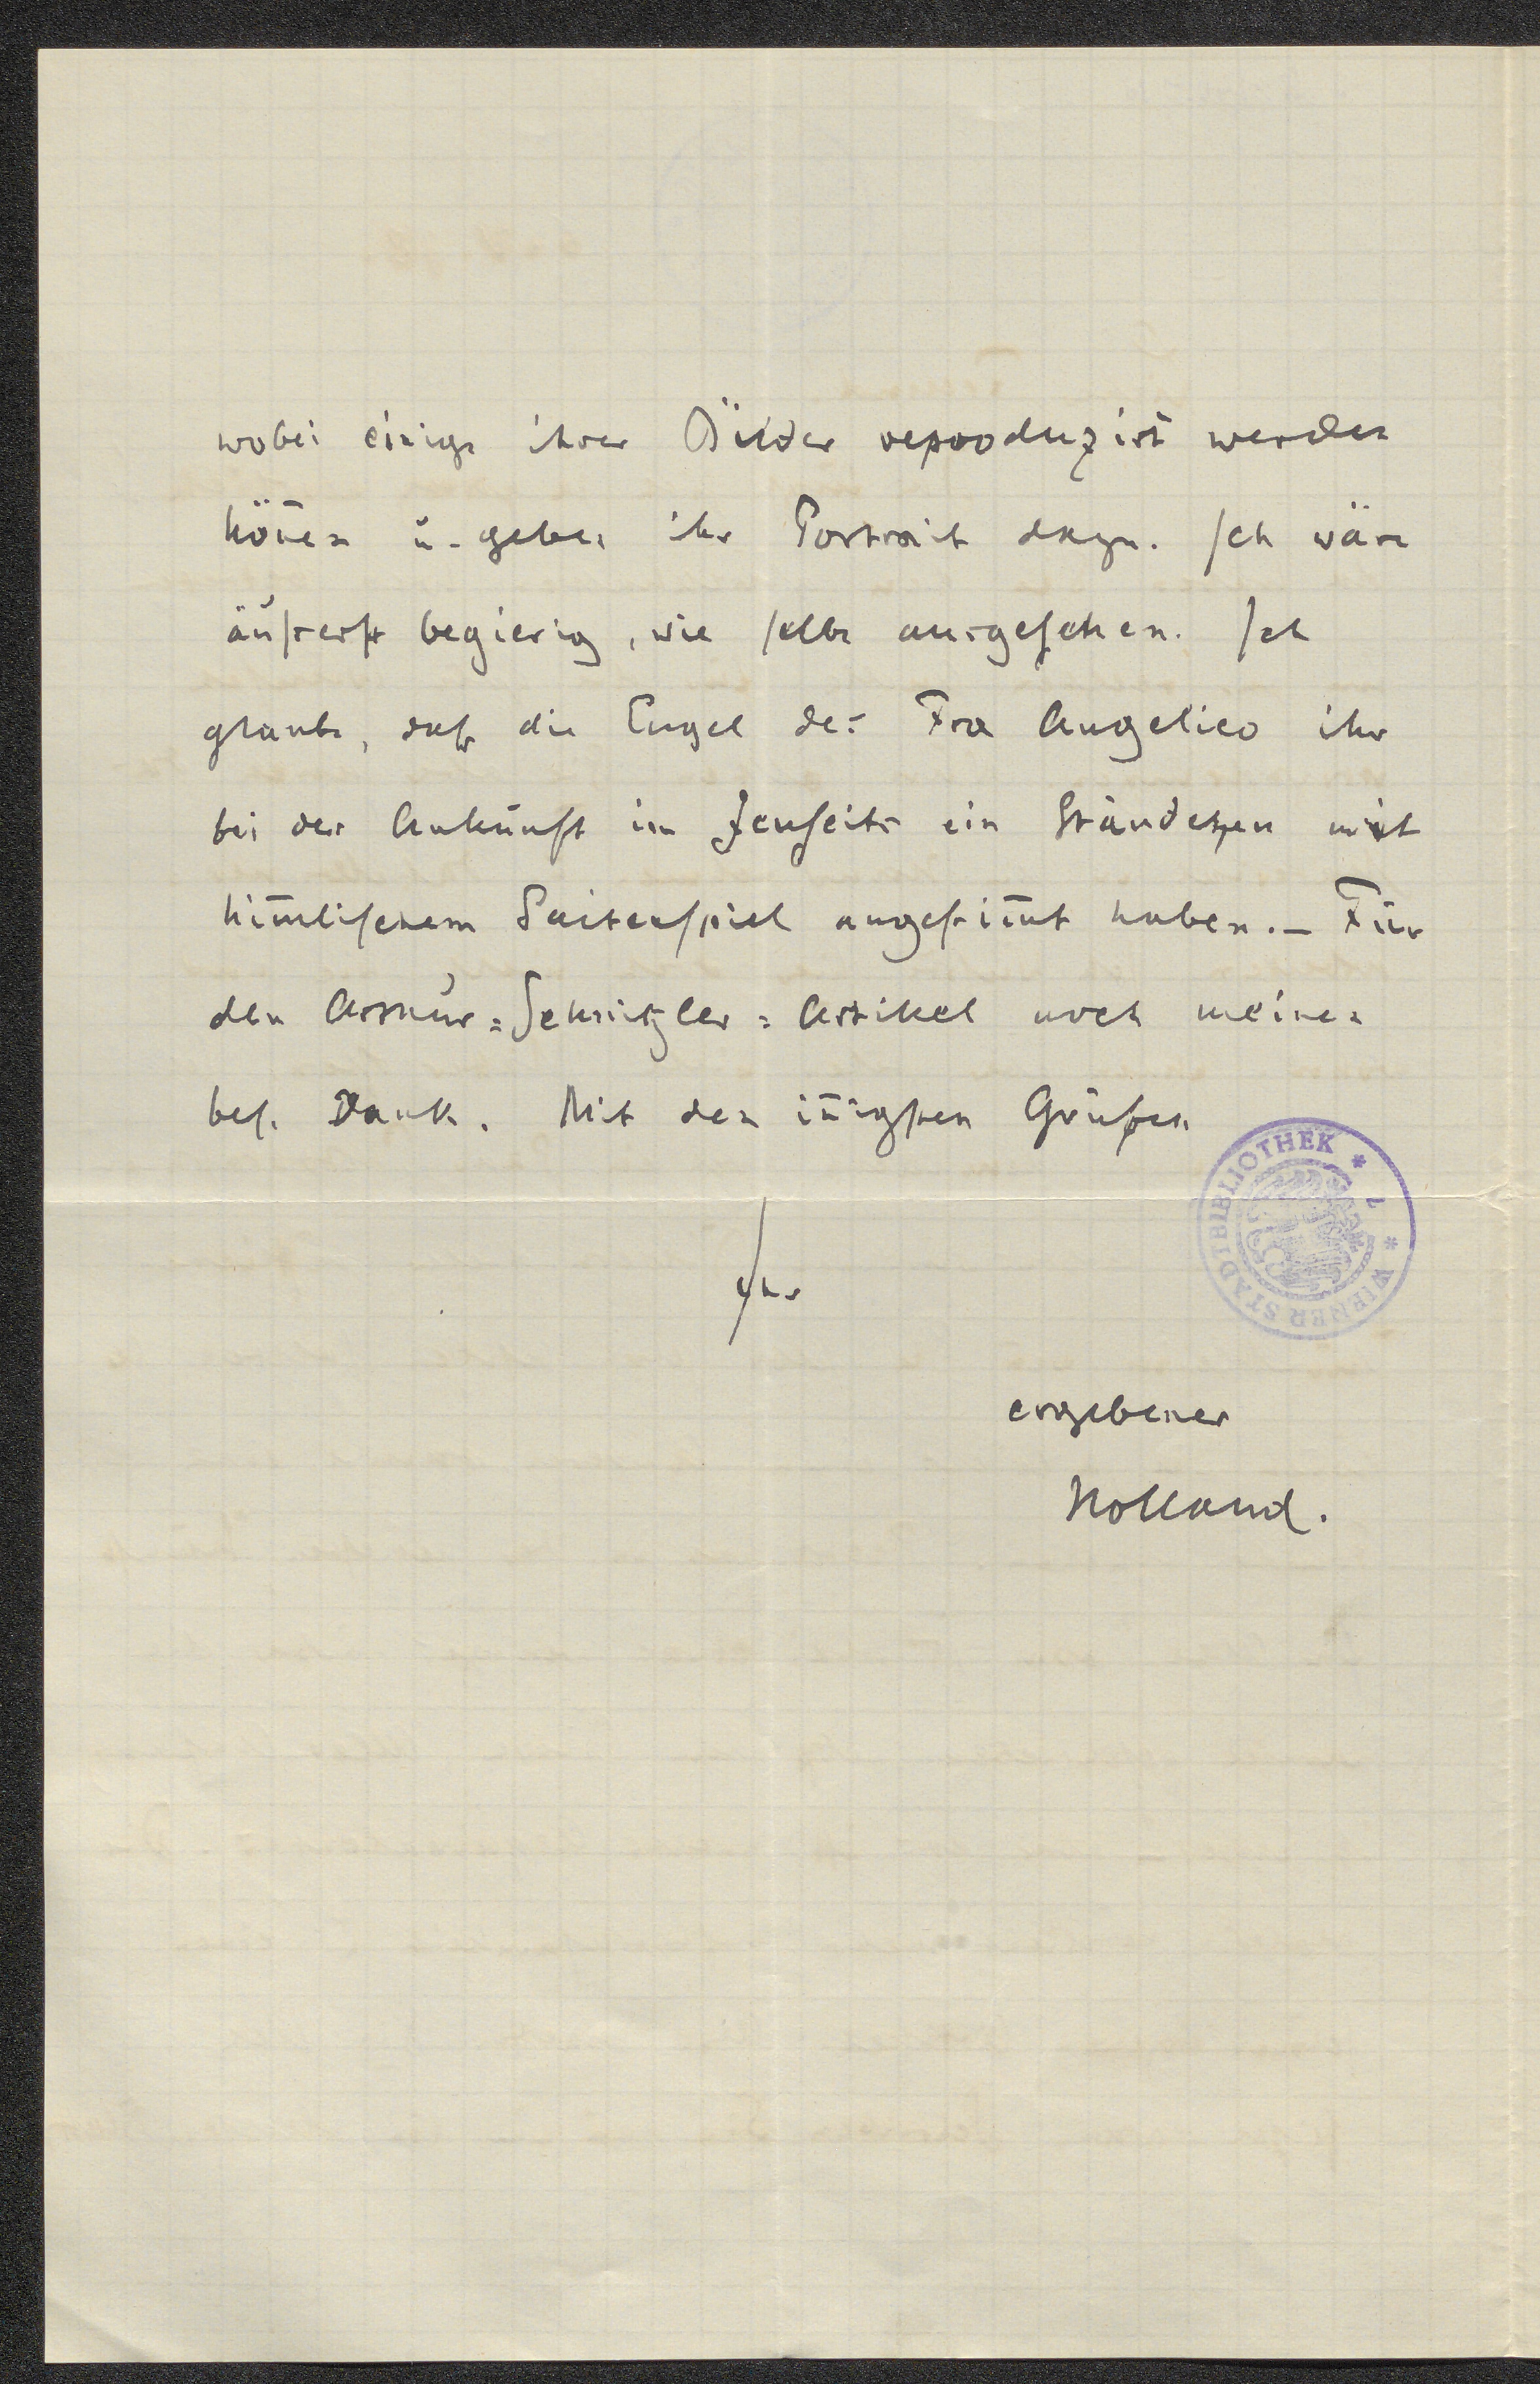 wobei einige ihrer Bilder reproduzirt werden
kön̄en u. geben ihr Portrait dazu. Ich wäre
äußerst begierig, wie selbe ausgesehen. Ich
glaube, daß die Engel des Fra Angelico ihr
bei der Ankunft im Jenseits ein Ständchen mit
him̄lischem Saitenspiel angestim̄t haben. – Für
den Arthur=Schnitzler=Artikel noch meinen
bes. Dank. Mit den in̄igsten Grüßen
Ihr
ergebener
Holland.
WIENER STADTBIBLIOTHEK * 2 *